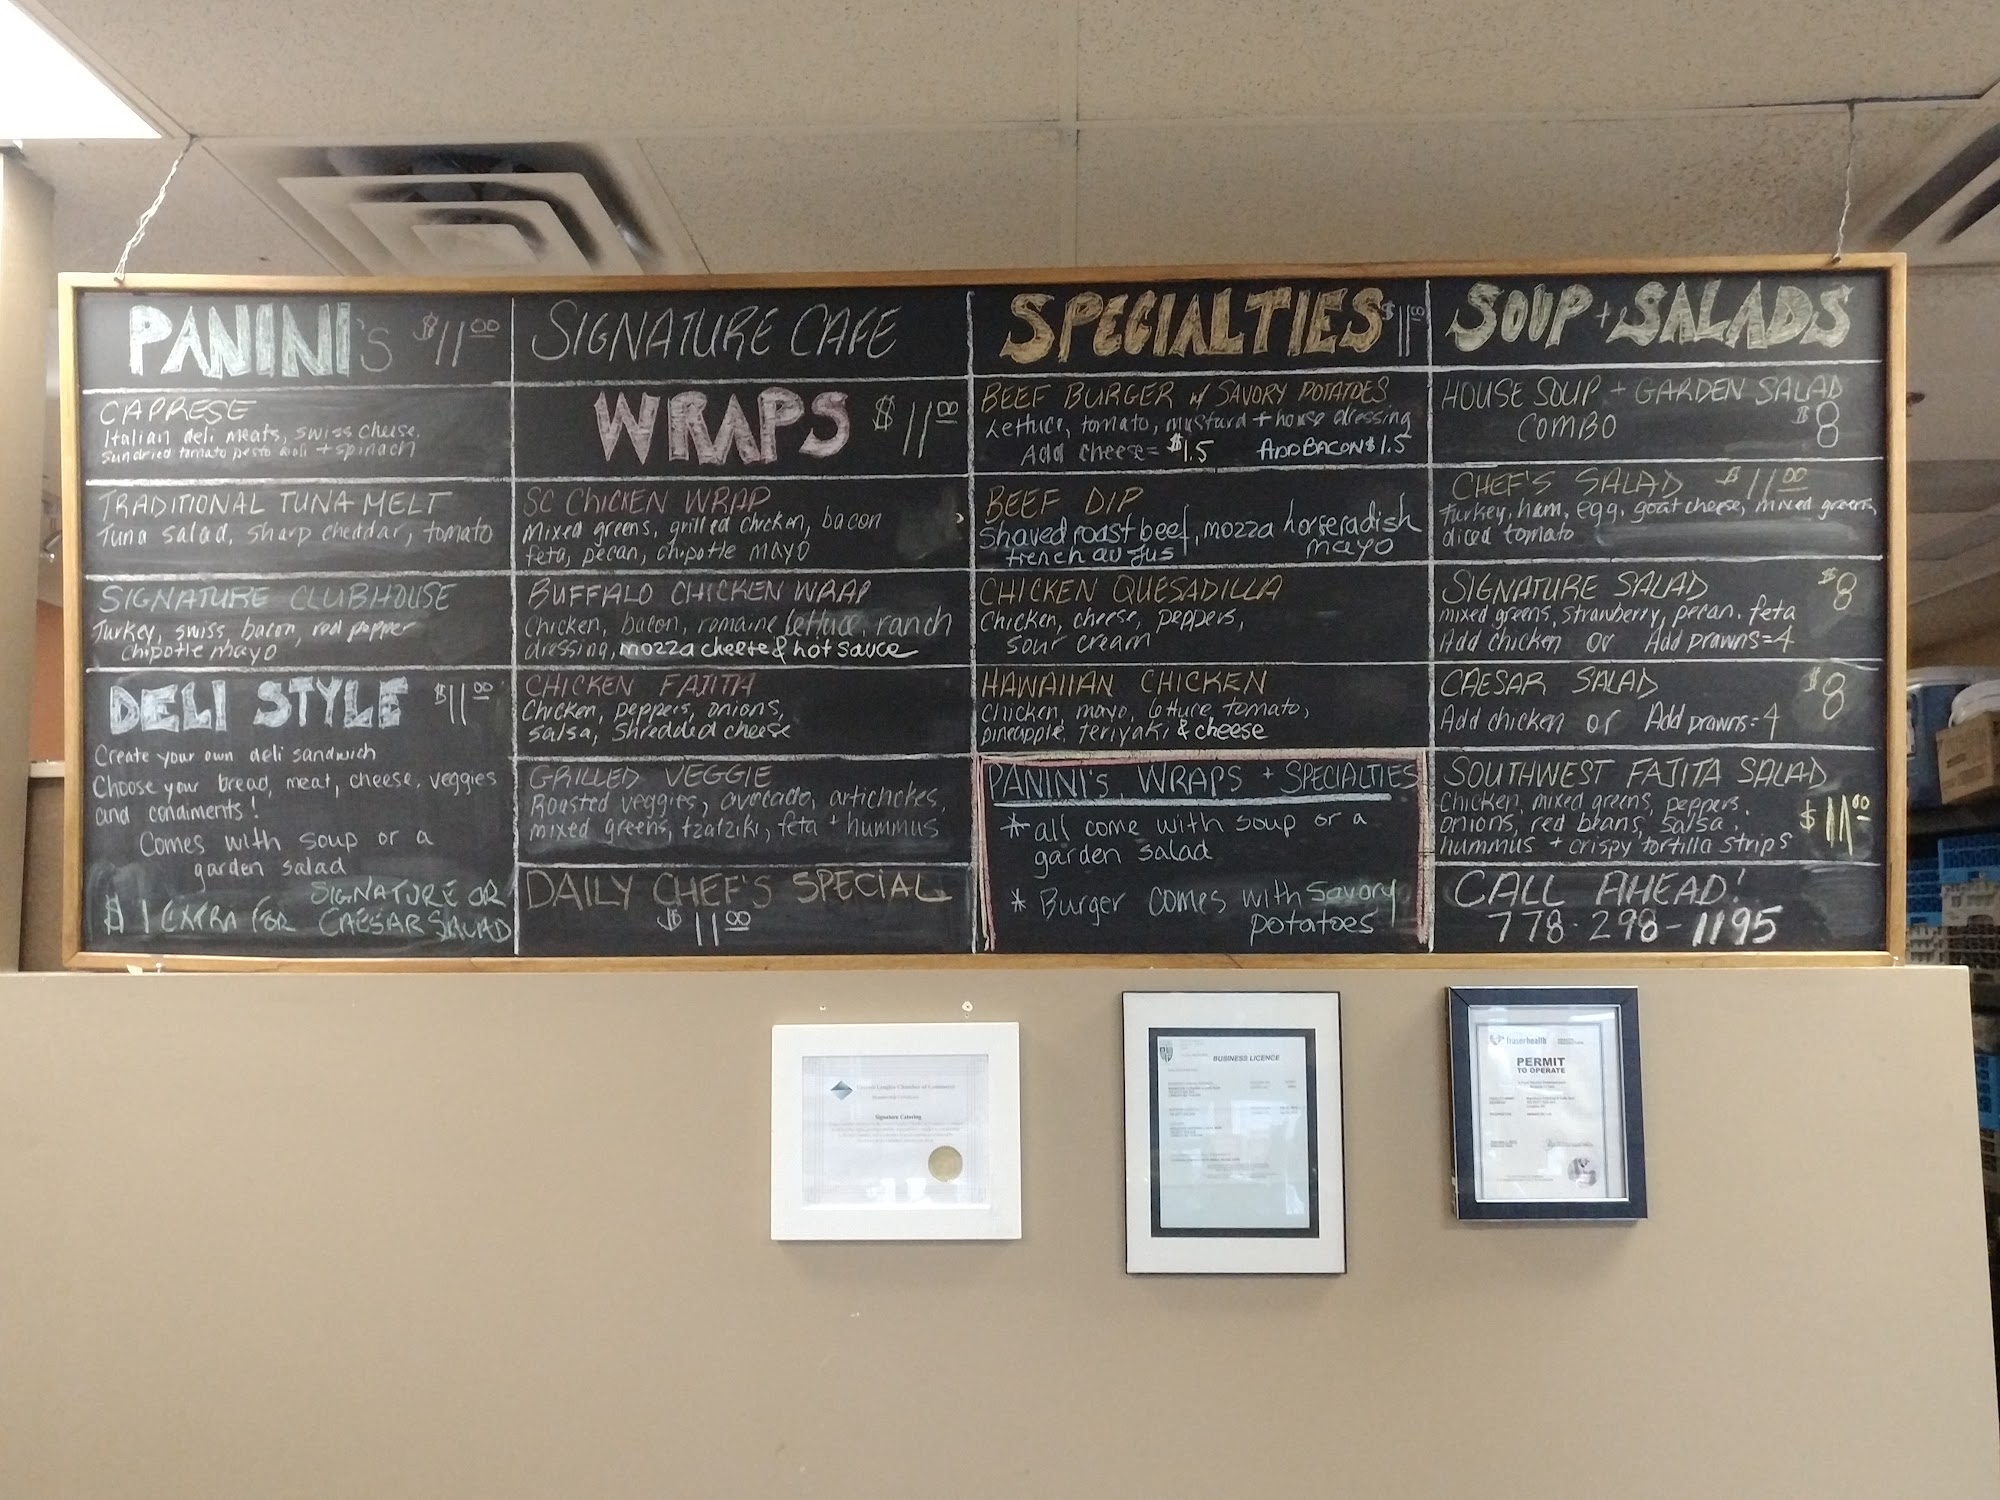 PANINI'S $11.00
CAPRESE
Italian deli meats, swiss cheese,
sundried tomato pesto aioli + spinach
TRADITIONAL TUNA MELT
Tuna salad, sharp cheddar, tomato
SIGNATURE CLUBHOUSE
Turkey, swiss, bacon, red pepper
chipotle mayo
DELI STYLE $11.00
Create your own deli sandwich
Choose your bread, meat, cheese, veggies
and condiments!
Comes with soup or a
garden salad
$1 EXTRA FOR SIGNATURE OR
CAESAR SALAD
SIGNATURE CAFE
WRAPS $11.00
SC CHICKEN WRAP
Mixed greens, grilled chicken, bacon
feta, pecan, chipotle MAYO
BUFFALO CHICKEN WRAP
Chicken, bacon, romaine lettuce, ranch
dressing, mozza cheese & hot sauce
CHICKEN FAJITA
Chicken, peppers, onions,
salsa, Shredded cheese
GRILLED VEGGIE
Roasted veggies, avocado, artichokes,
mixed greens, tzatziki, feta + hummus
DAILY CHEF'S SPECIAL
$11.00
SPECIALTIES $11
BEEF BURGER w/ SAVORY POTATOES
Lettuce, tomato, mustard + house dressing
Add cheese = $1.5 ADD BACON $1.5
BEEF DIP
Shaved roast beef, mozza horseradish
french au jus mayo
CHICKEN QUESADILLA
Chicken, cheese, peppers,
sour cream
HAWAIIAN CHICKEN
Chicken, mayo, lettuce tomato,
pineapple, teriyaki & cheese
PANINI'S, WRAPS + SPECIALTIES
* all come with soup or a
garden salad
* Burger comes with savory
potatoes
SOUP + SALADS
HOUSE SOUP + GARDEN SALAD
COMBO $8
CHEF'S SALAD $11.00
Turkey, ham, egg, goat cheese, mixed greens,
diced tomato
SIGNATURE SALAD $8
mixed greens, strawberry, pecan, feta
Add chicken or Add prawns=4
CAESAR SALAD $8
Add chicken or Add prawns=4
SOUTHWEST FAJITA SALAD
Chicken, mixed greens, peppers,
onions, red beans, salsa, $11.00
hummus + crispy tortilla strips
CALL AHEAD!
778-298-1195
Greater Langley Chamber of Commerce
Membership Certificate
Signature Catering
BUSINESS LICENCE
fraserhealth
PERMIT
TO OPERATE